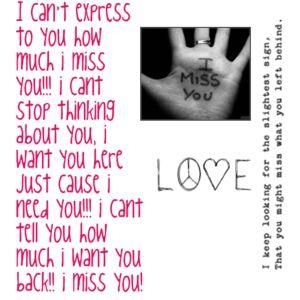 I can't express
to you how
much i miss
you!!! i cant
stop thinking
about you, i
want you here
just cause i
need you!!! i cant
tell you how
much i want you
back!! i miss you!
I
MISS
YOU
LOVE
I keep looking for the slightest sign,
That you might miss what you left behind.